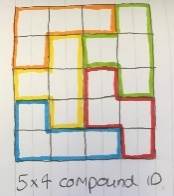 5x4 compound 10